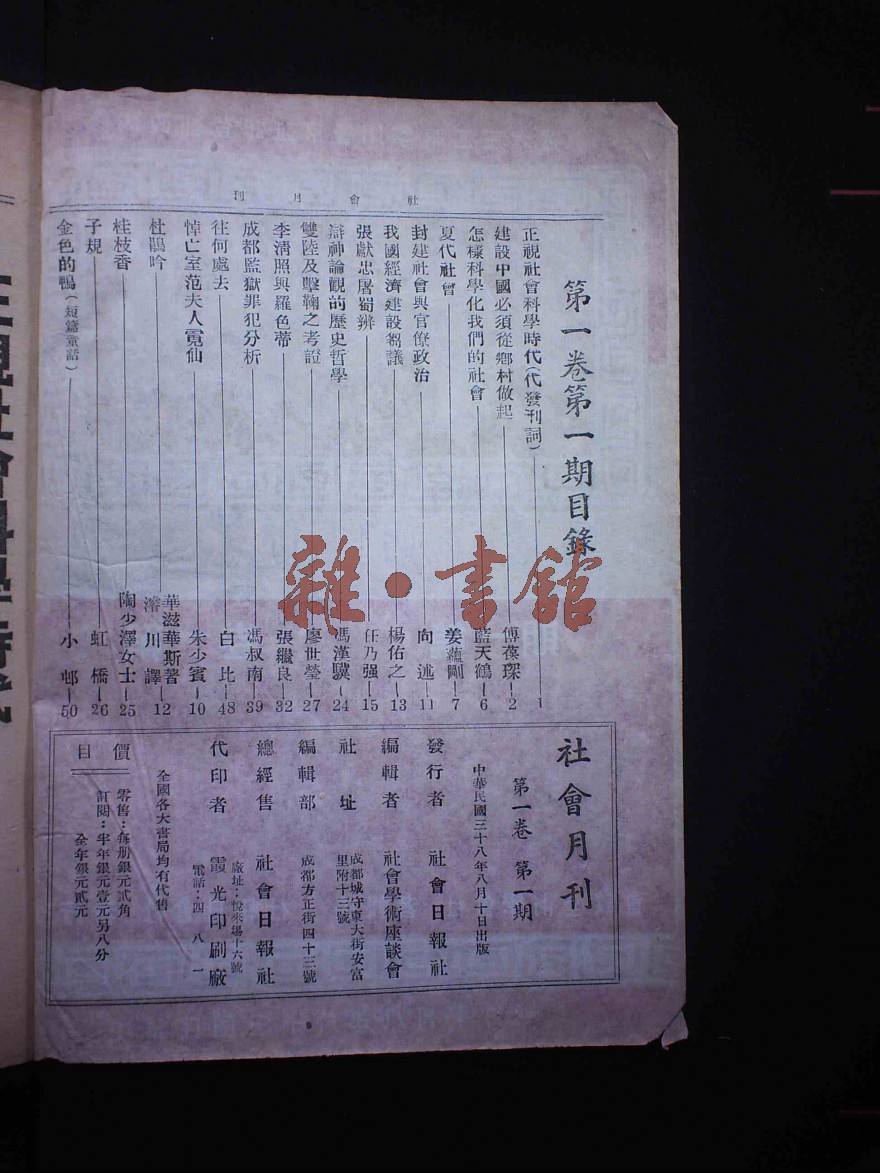 社會月刊
第一卷第一期目錄
正視社會科學時代(代發刊詞) 1
建設中國必須從鄉村做起 傅葆琛 2
怎樣科學化我們的社會 藍天鶴 6
夏代社會 姜蘊剛 7
封建社會與官僚政治 向述 11
我國經濟建設芻議 楊佑之 13
張獻忠屠蜀辨 任乃强 15
辯神論觀的歷史哲學 馮漢驥 24
雙陸及擊鞠之考證 廖世瑩 27
李清照與羅色蒂 張繼良 32
成都監獄罪犯分析 馮叔南 39
往何處去 白比 48
悼亡室范夫人霓仙 朱少賓 10
杜鵑吟 華滋華斯著 濬川譯 12
桂枝香 陶少澤女士 25
子規 虹橋 26
金色的鴨(短篇童話) 小邨 50
社會月刊
第一卷 第一期
中華民國三十八年八月十日出版
發行者 社會日報社
編輯者 社會學術座談會
社址 成都城守東大街安富里附十三號
編輯部 成都方正街四十三號
總經售 社會日報社
代印者 霞光印刷廠
廠址:悅來場十六號
電話:四八一
全國各大書局均有代售
價目
零售:每册銀元貳角
訂閱:半年銀元壹元另八分
全年銀元貳元
雜·書館